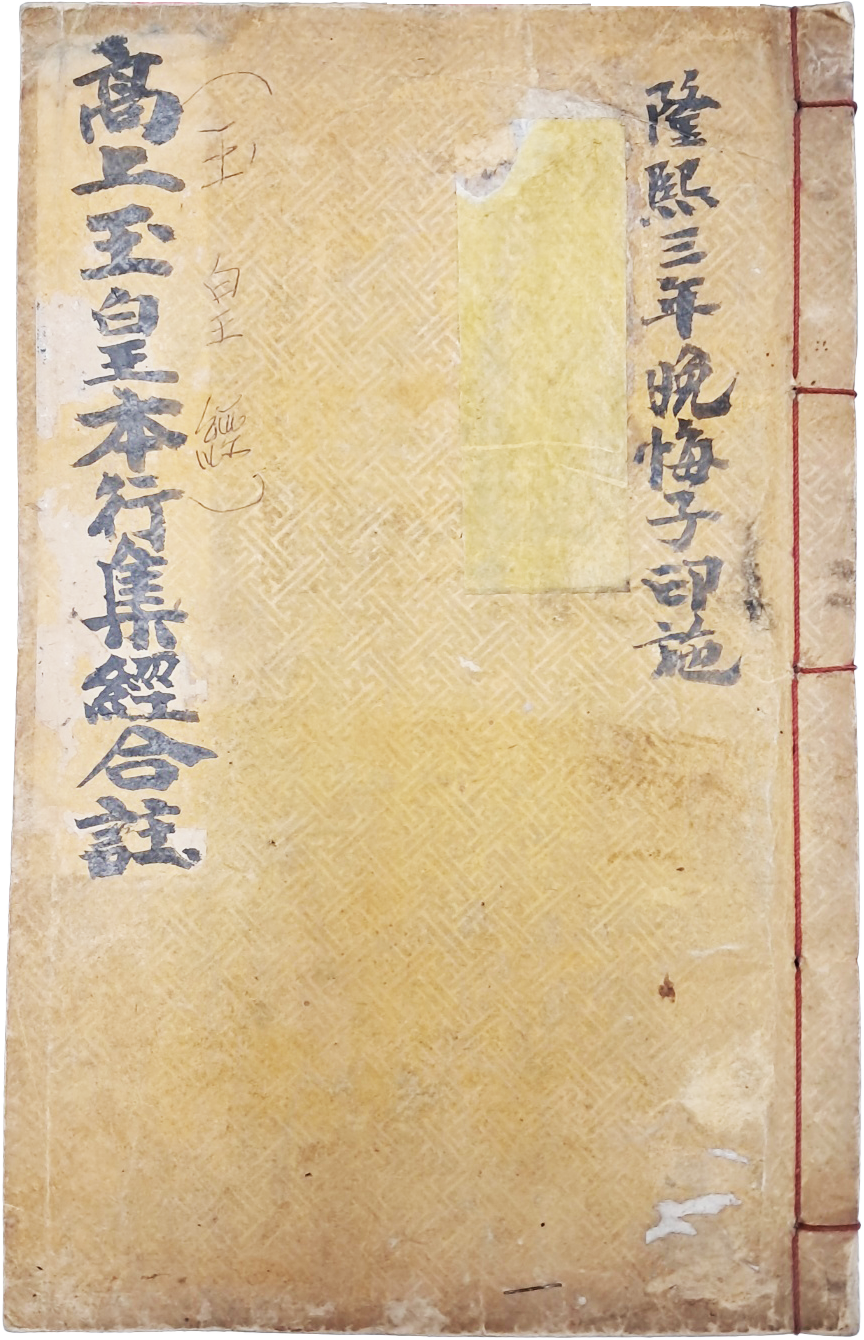 隆熙三年晩悔子印施
(玉皇經)
高上玉皇本行集經合註